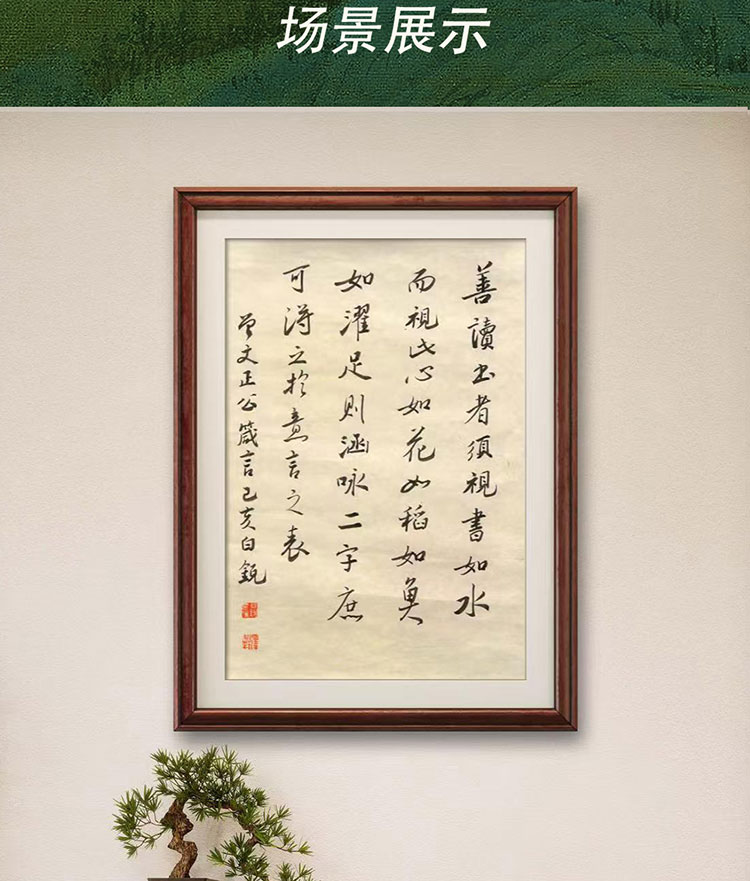 场景展示
善讀书者須視書如水
而視此心如花如稻如魚
如濯足則涵咏二字庶
可得之於意言之表
曾文正公箴言己亥白銳